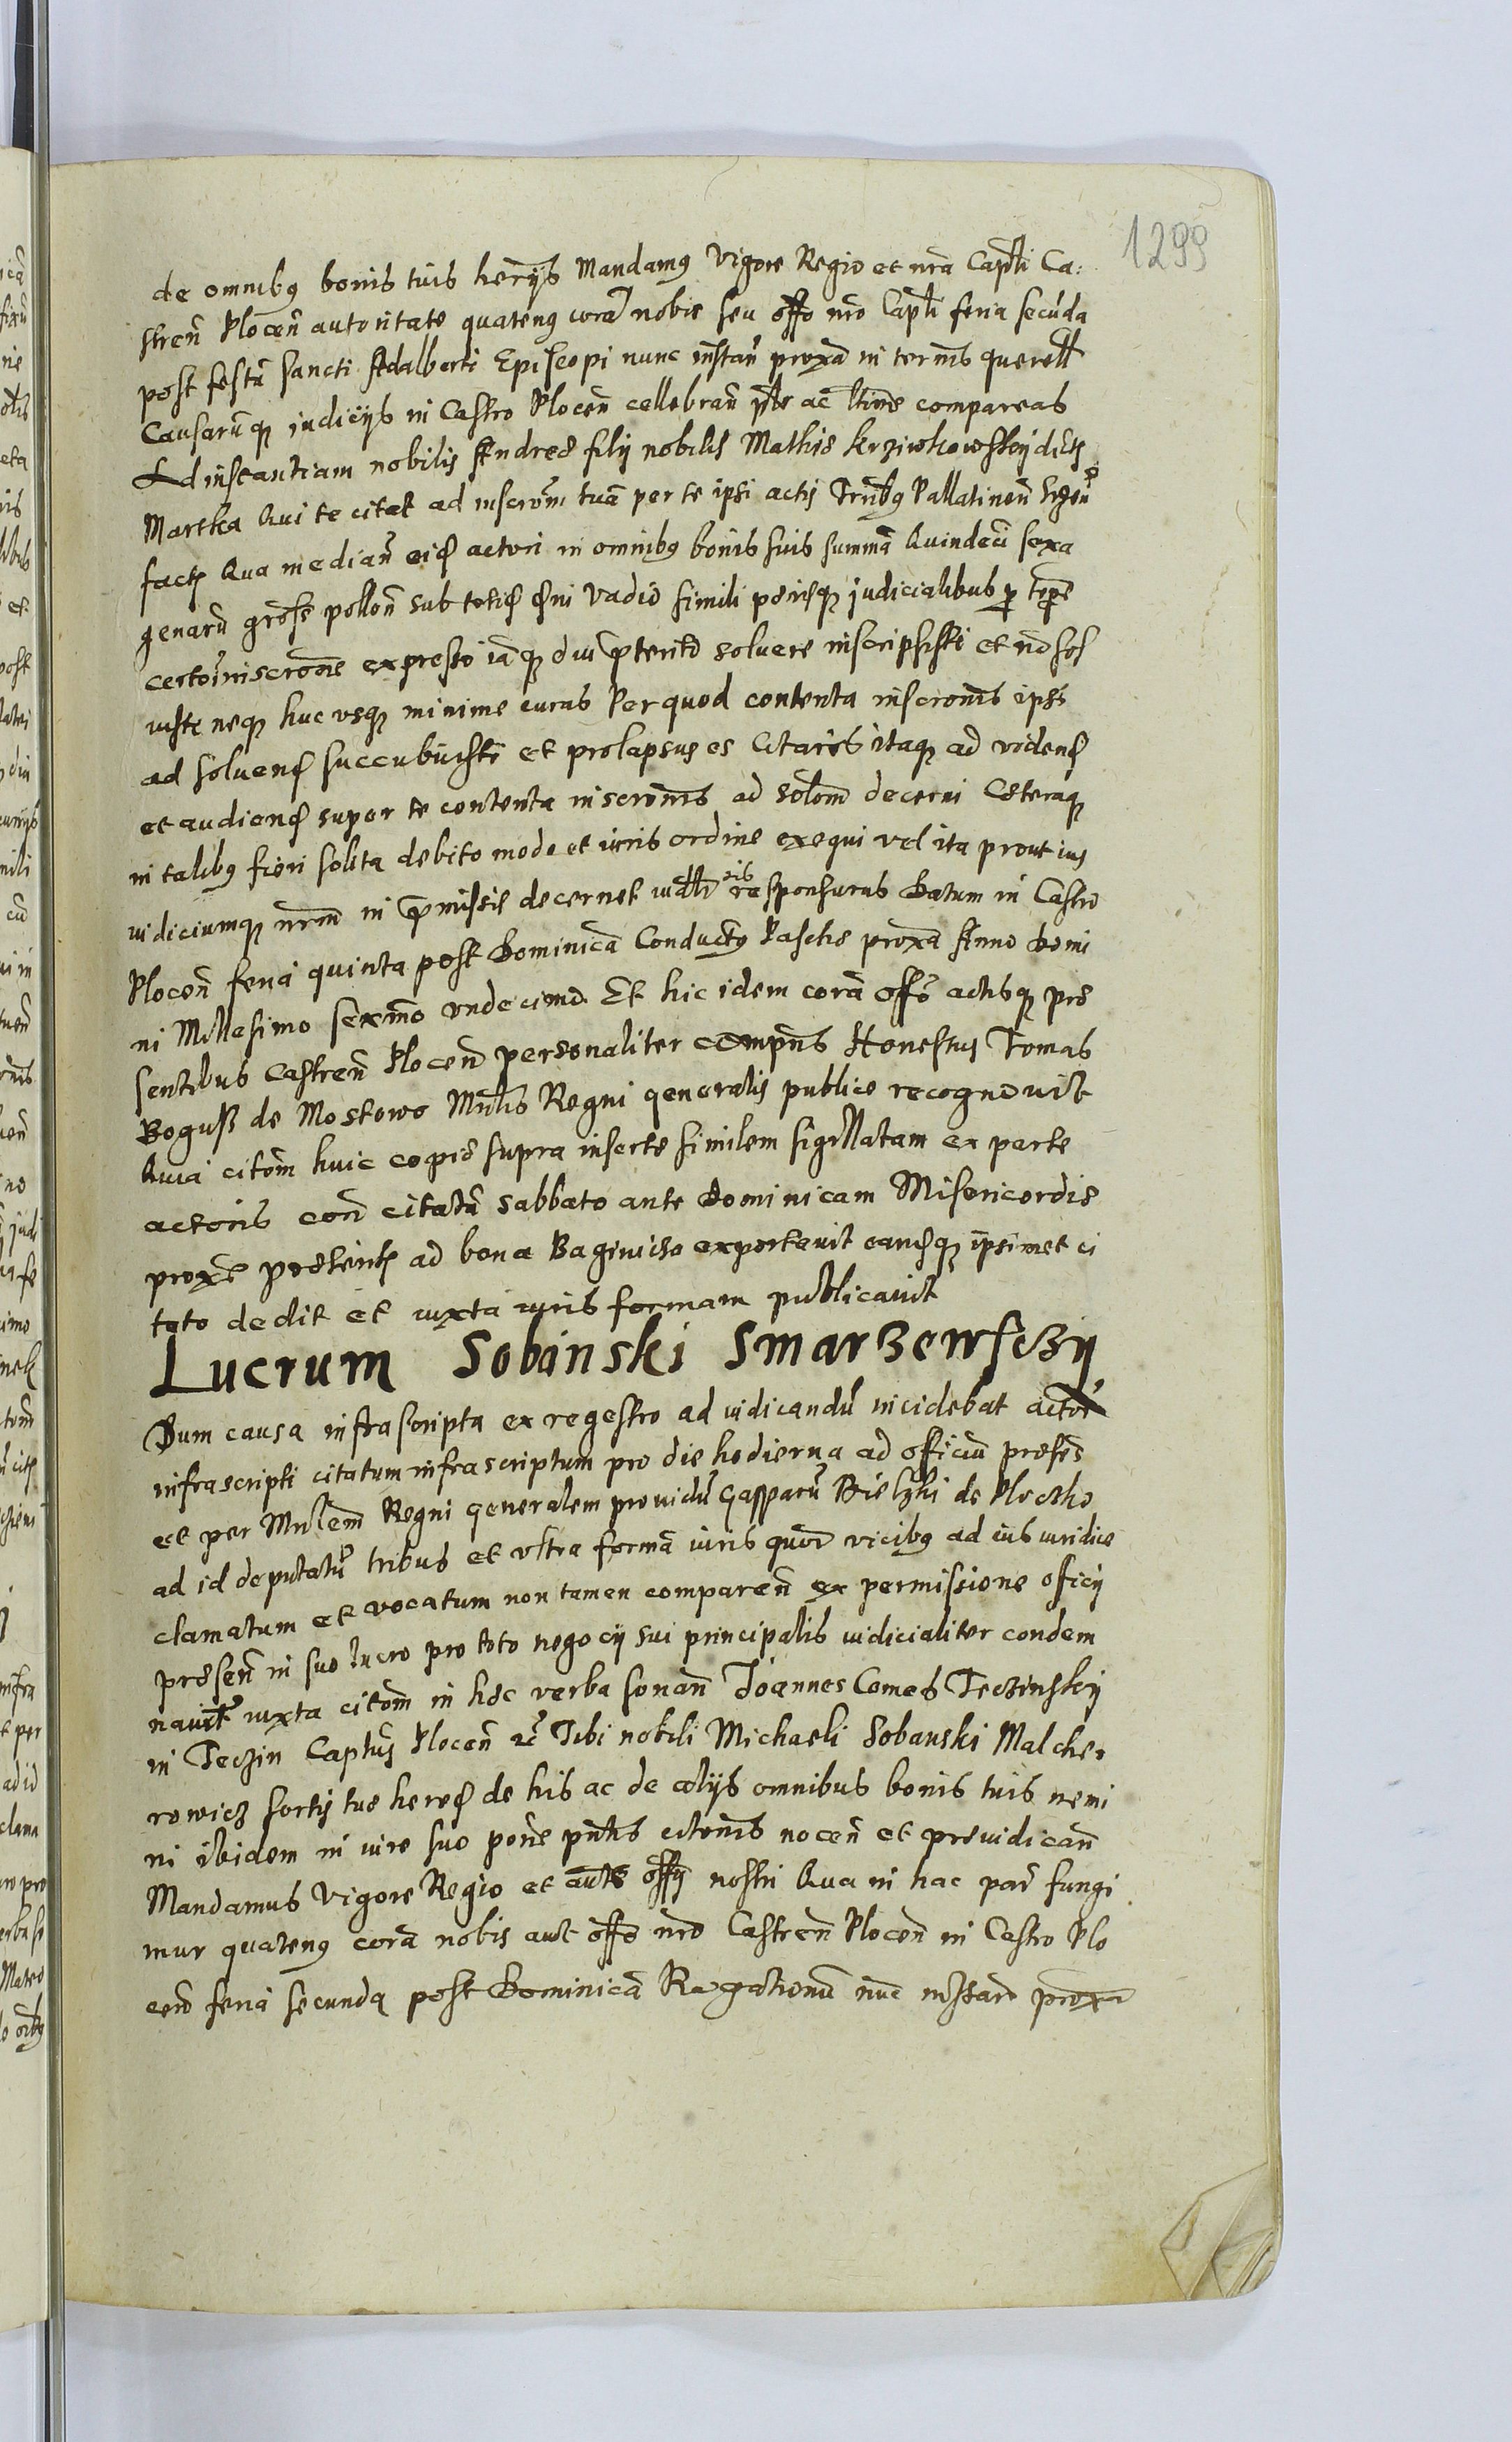 1299
de omnibus bonis tuis herijs Mandamus Vigore Regio et nra Capli Ca:
stren Plocen autoritate quatenus cora nobis seu offo nro Capli feria secuda
post festu sancti Adalberti Episcopi nunc instan proxa in termis querell
Causaruq judicijs in Castro Plocen cellebran ptr ac ltime compareas
Ad instantiam nobilis Andreæ filij nobilis Mathiæ Krziwkowskij dicti
Martka Qui te citat ad inscrom tua per te ipsi actij Pallatinen
facti Qua median eid actori in omnibus bonis suis summa Quindeci sexa
genaru gross pollon sub vadio simili pænisq judicialibus p tempe
certo inscrone expresso iaq diu pterito soluere inscripsisti et no sol
uisti neq huc usq minime curas Per quod contenta inscronis ipsi
ad soluend succubuisti et prolapsus es Citaris itaq ad vidend
et audiend super te contenta inscronis ad solom decerni Cæteraq
in talibus fieri solita debito modo et iuris ordine exequi vel ita prout ius
iudiciumq nrm in præmissis decernet iudlr eis responsurus Datum in Castro
Plocen feria quinta post Dominica Conductus Paschæ proxa Anno Domi
ni Millesimo sexmo undecimo Et hic idem cora offo actisq præ
sentibus Castren Plocen personaliter compns Honestus Tomas
Boguss de Mostowo Mnlis Regni generalis publice recognouit
Quia citom huic copiæ supra insertæ similem sigillatam ex parte
actoris con citatu sabbato ante Dominicam Misericordiæ
proxe præteriti ad bona exportauit eandq ipsimet ci
tato dedit et iuxta iuris formam publicauit
Lucrum Sobanski Smarzewsczy
Dum causa infrascripta ex regestro ad iudicandu incidebat actor
infrascripti citatum infrascriptum pro die hodierna ad officiu præsens
et per Mnlem Regni generalem prouidu Gasparu Bielski de Ploczko
ad id deputatu tribus et ultra forma iuris quor vicibus ad ius iuridice
clamatum et vocatum non tamen comparen ex permissione officij
præsen in suo lucro pro toto negocij sui principalis iudicialiter condem
nauit iuxta citom in hæc verba sonan Joannes Comes Teczinskij
in Teczin Captus Plocen etc Tibi nobili Michaeli Sobanski Malcher
rowicz sortis tuæ hered de his ac de alijs omnibus bonis tuis nemi
ni ibidem in iure suo pone pntis citonis nocen et præiudican
Mandamus Vigore Regio et aute offij nostri Qua in hac par fungi
mur quatenus cora nobis aut offo nro Castren Plocen in Castro Plo
cen feria secunda post Dominica Rogationu nuc instan proxa